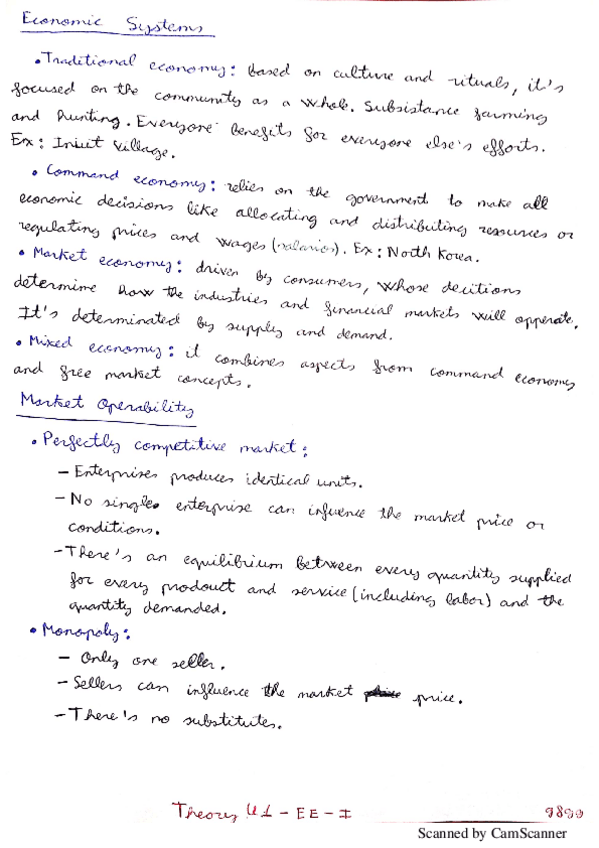 Economic Systems
• Traditional economy: based on culture and rituals, it's
focused on the community as a whole. Subsistance farming
and hunting. Everyone benefits for everyone else's efforts.
Ex: Iniut Village.
• Command economy: relies on the government to make all
economic decisions like allocating and distributing resources or
regulating prices and wages (salarios). Ex: North Korea.
• Market economy: driven by consumers, whose decitions
determine how the industries and financial markets will opperate.
It's determinated by supply and demand.
• Mixed economy: it combines aspects from command economy
and free market concepts.
Market Operability
• Perfectly competitive market:
- Enterprises produces identical units.
- No single enterprise can influence the market price or
conditions.
- There's an equilibrium between every quantity supplied
for every prodouct and service (including labor) and the
quantity demanded.
• Monopoly:
- Only one seller.
- Sellers can influence the market price.
- There's no substitutes.
Theory U1 - EE - I
Scanned by CamScanner